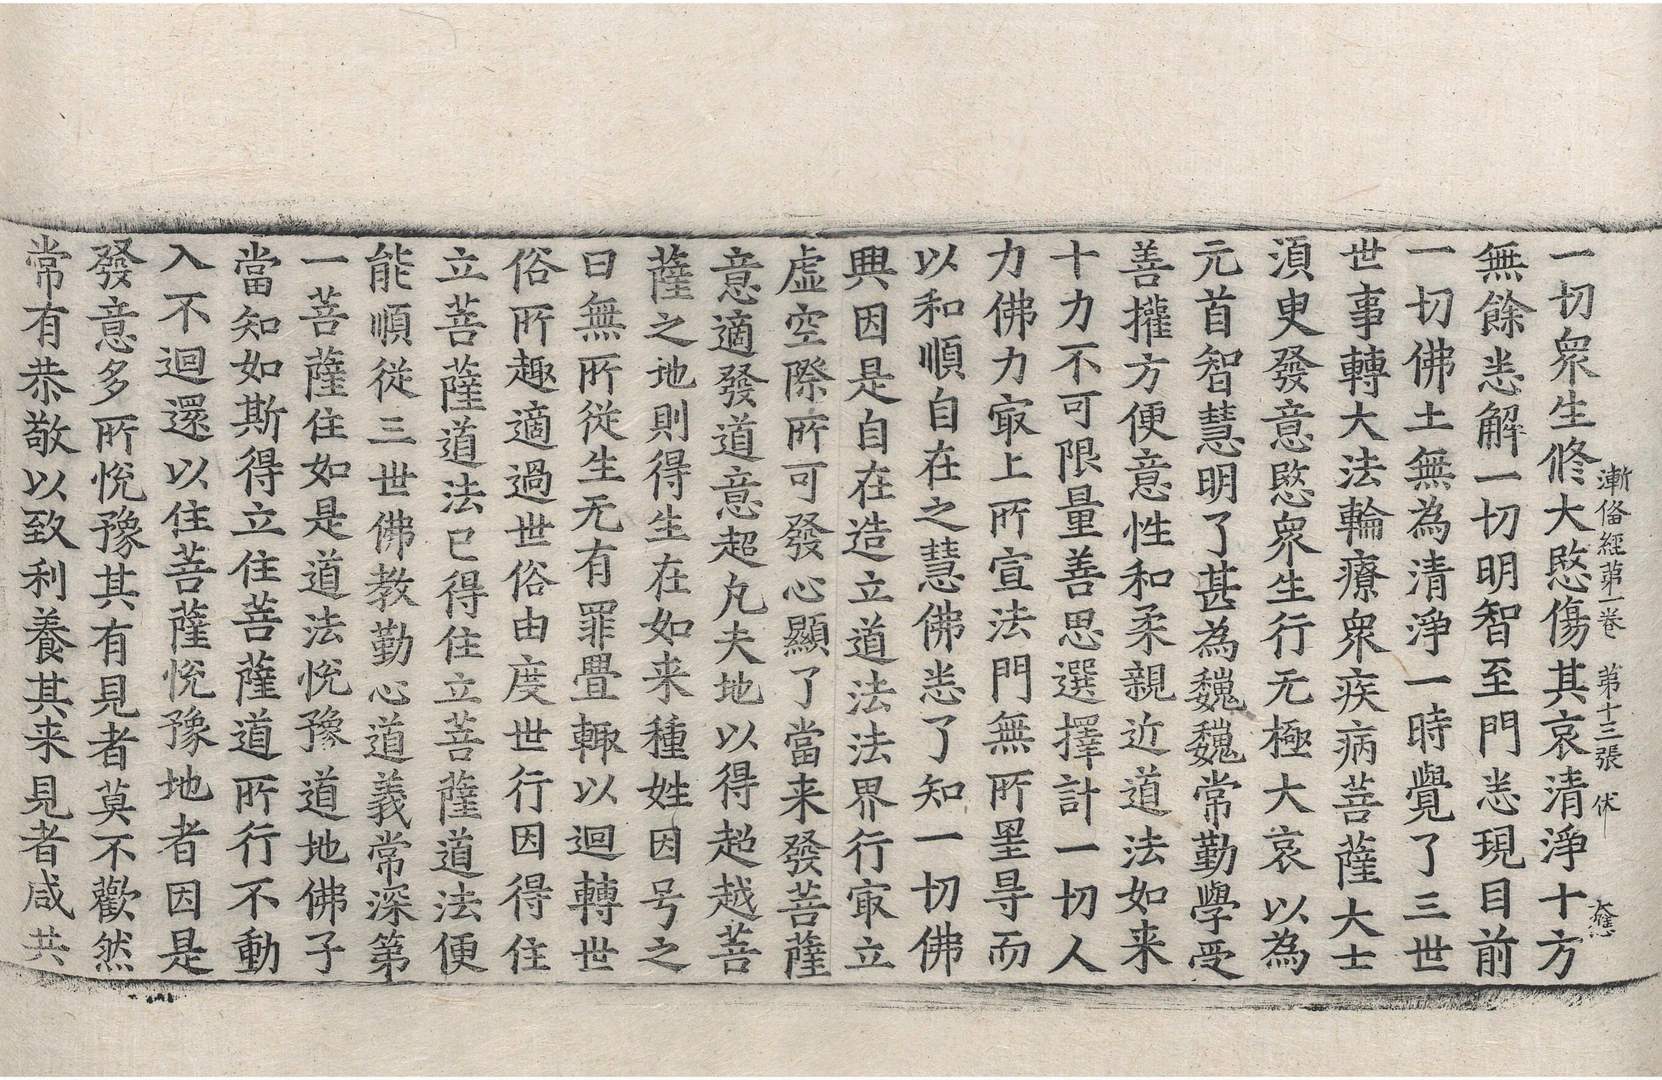 漸俻經第一卷　第十三張　伏
一切衆生修大慜傷其哀清淨十方
無餘悉解一切明智至門悉現目前
一切佛土無為清淨一時覺了三世
世事轉大法輪療衆疾病菩薩大士
湏臾發意慜衆生行无極大哀以為
元首智慧明了甚為巍巍常勤學受
善攉方便意性和柔親近道法如来
十力不可限量善思選擇計一切人
力佛力㝡上所宣法門無所罣㝵而
以和順自在之慧佛悉了知一切佛
興因是自在造立道法法界行㝡立
虚空際所可發心顯了當来發菩薩
意適發道意超凢夫地以得超越菩
薩之地則得生在如来種姓因号之
曰無所從生无有罪舋輙以迴轉世
俗所趣適過世俗由度世行因得住
立菩薩道法已得住立菩薩道法便
能順從三世佛教勤心道義常深第
一菩薩住如是道法悅豫道地佛子
當知如斯得立住菩薩道所行不動
入不迴還以住菩薩悅豫地者因是
發意多所悅豫其有見者莫不歡然
常有恭敬以致利養其来見者咸共